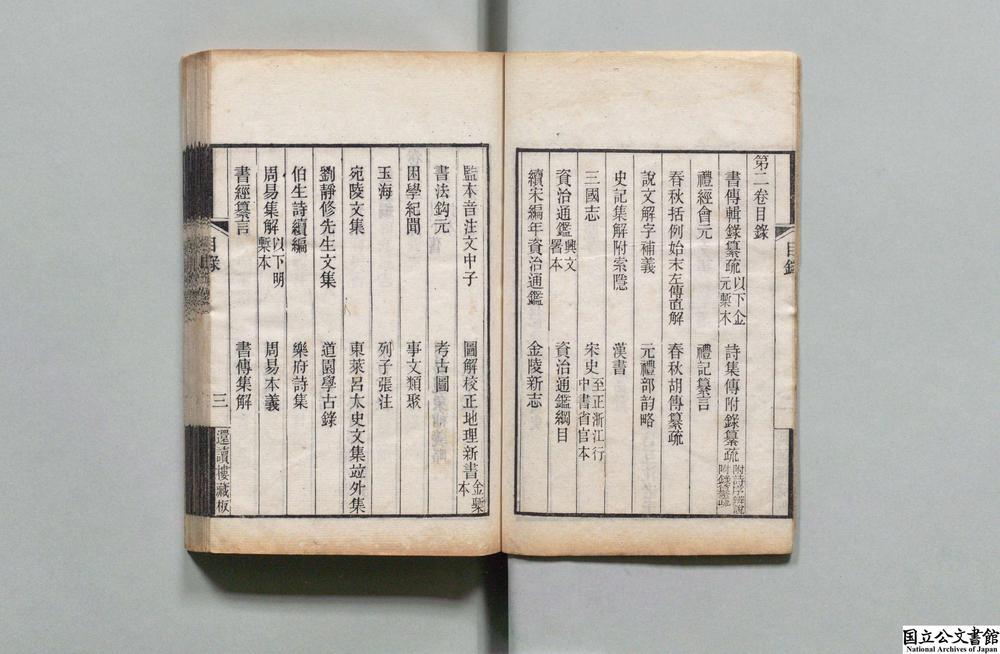 第二卷目錄
書傳輯錄纂疏以下金元槧本 詩集傳附錄纂疏附詩序辨說附錄纂疏
禮經會元 禮記纂言
春秋括例始末左傳直解 春秋胡傳纂疏
說文解字補義 元禮部韵略
史記集解附索隱 漢書
三國志 宋史至正浙江行中書省官本
資治通鑑興文署本 資治通鑑綱目
續宋編年資治通鑑 金陵新志
監本音注文中子 圖解校正地理新書金槧本
書法鈎元 考古圖
困學紀聞 事文類聚
玉海 列子張注
宛陵文集 東萊呂太史文集竝外集
劉靜修先生文集 道園學古錄
伯生詩續編 樂府詩集
周易集解以下明槧本 周易本義
書經纂言 書傳集解
目錄 三 還讀樓藏板
目錄
国立公文書館
National Archives of Japan